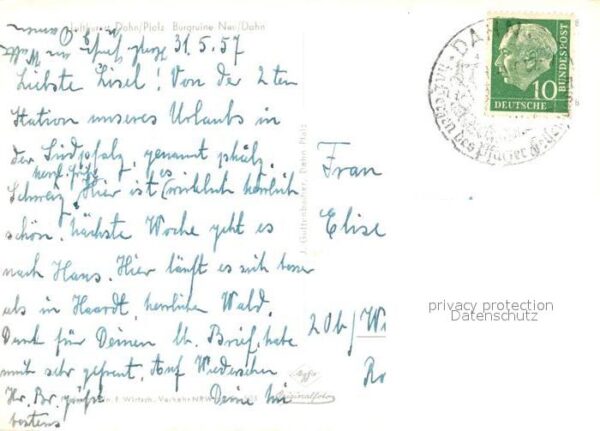 Luftkurort Dahn/Pfalz Burgruine Neu/Dahn
31.5.57
Liebste Lisel! Von der 2ten
Station unseres Urlaubs in
der Südpfalz, genannt pfälz.
Schweiz. Hier ist es (wirklich herrlich
schön. Nächste Woche geht es
nach Haus. Hier läuft es sich besser
als in Haardt, herrlicher Wald.
Dank für Deinen lb. Brief, habe
mich sehr gefreut. Auf Wiedersehen
Hr. Br. grüßt Deine
bestens
J. Guttenbacher, Dahn Pfalz
Frau
Elise
20b/Wi
Ro
Agfa
Originalfoto
DAHN
10
DEUTSCHE
BUNDESPOST
privacy protection
Datenschutz